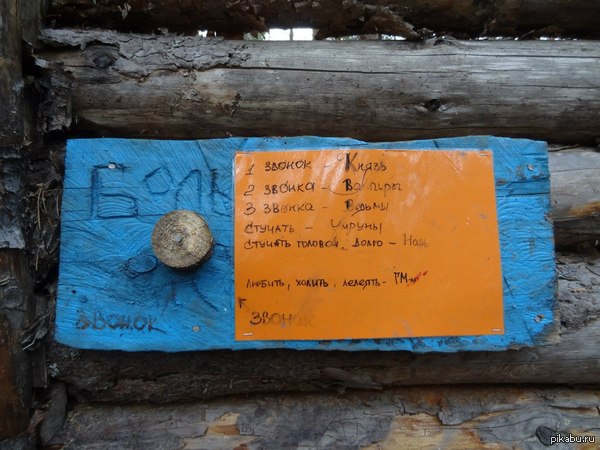 Боль
1 звонок – Князь
2 звонка – Вампиры
3 звонка – Ведьмы
Стучать –
Стучать головой, долго –
Любить, холить, лелеять – ГМ
ЗВОНОК
ЗВОНОК
pikabu.ru